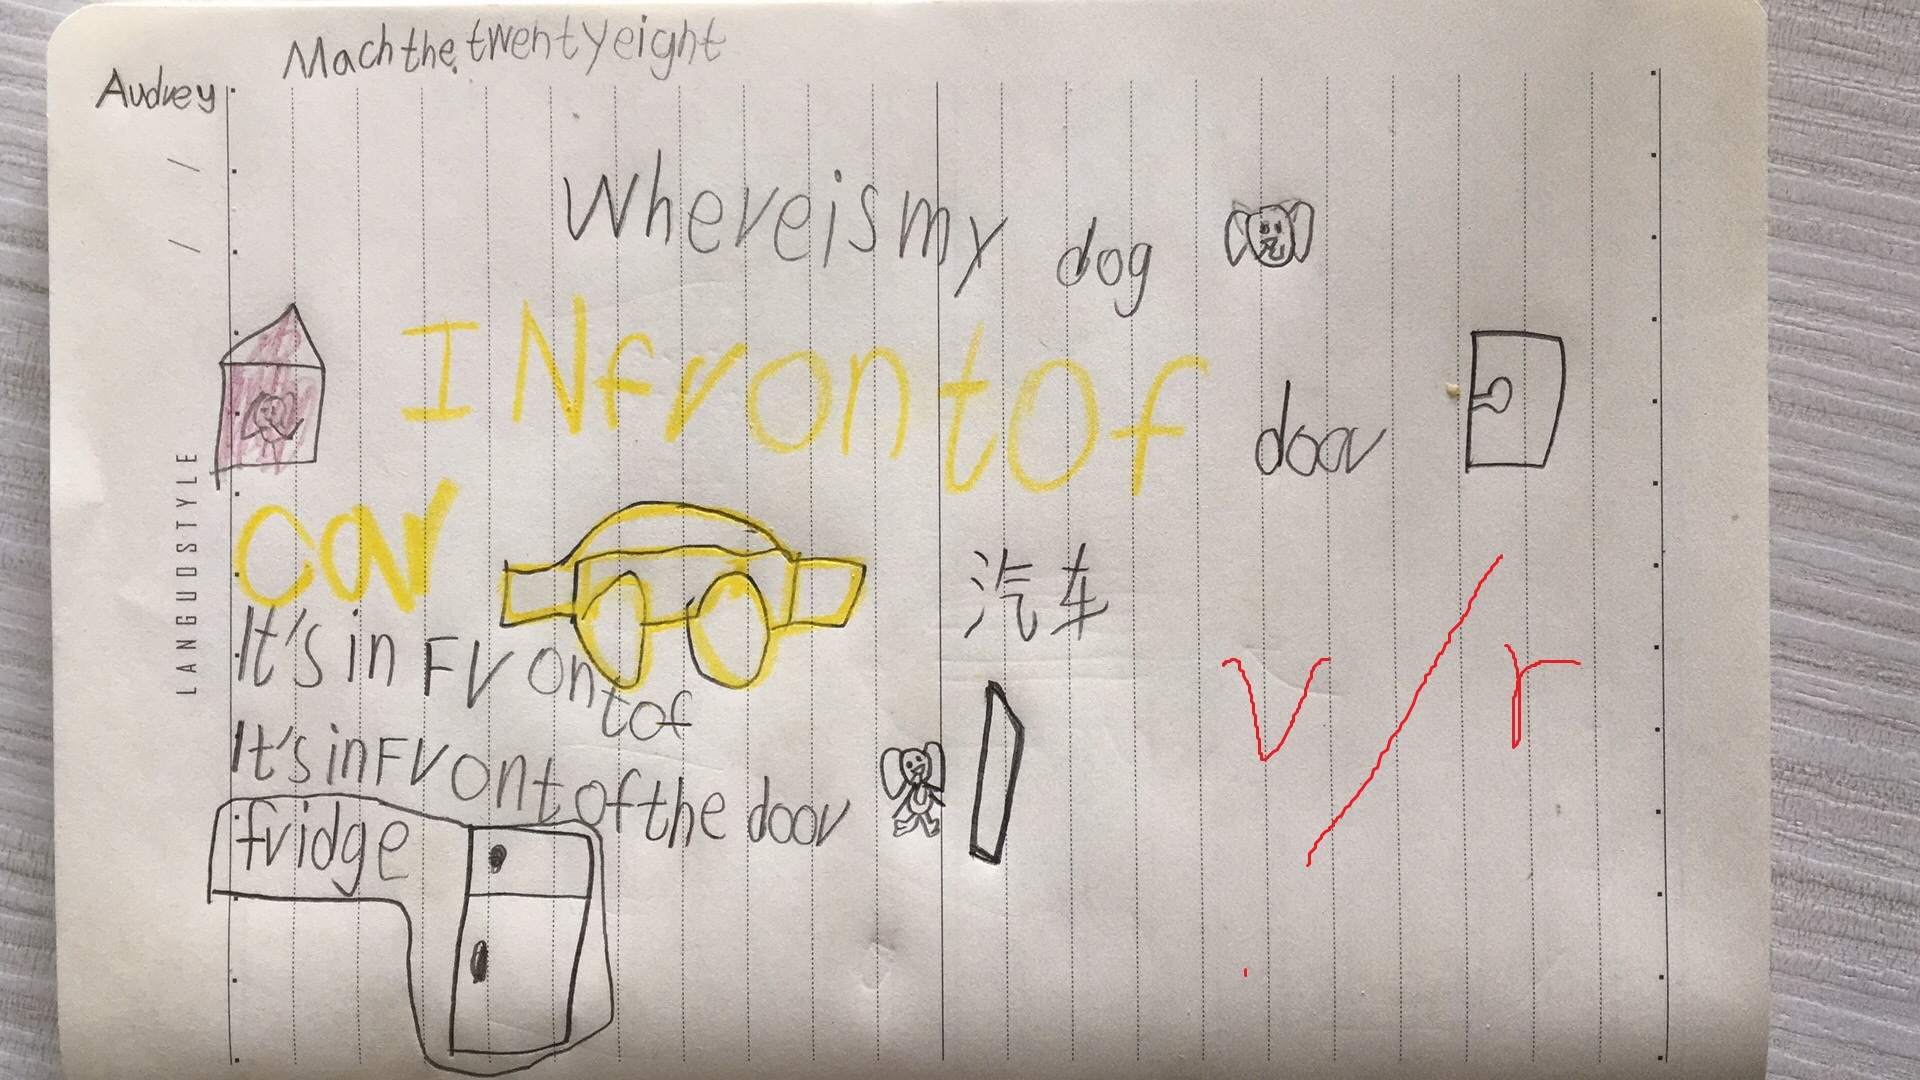 Mach the twenty eight
Audrey
Where is my dog
IN front of door
car
汽车
It's in Front of
It's in Front of the door
fridge
v / r
LANGUOSTYLE